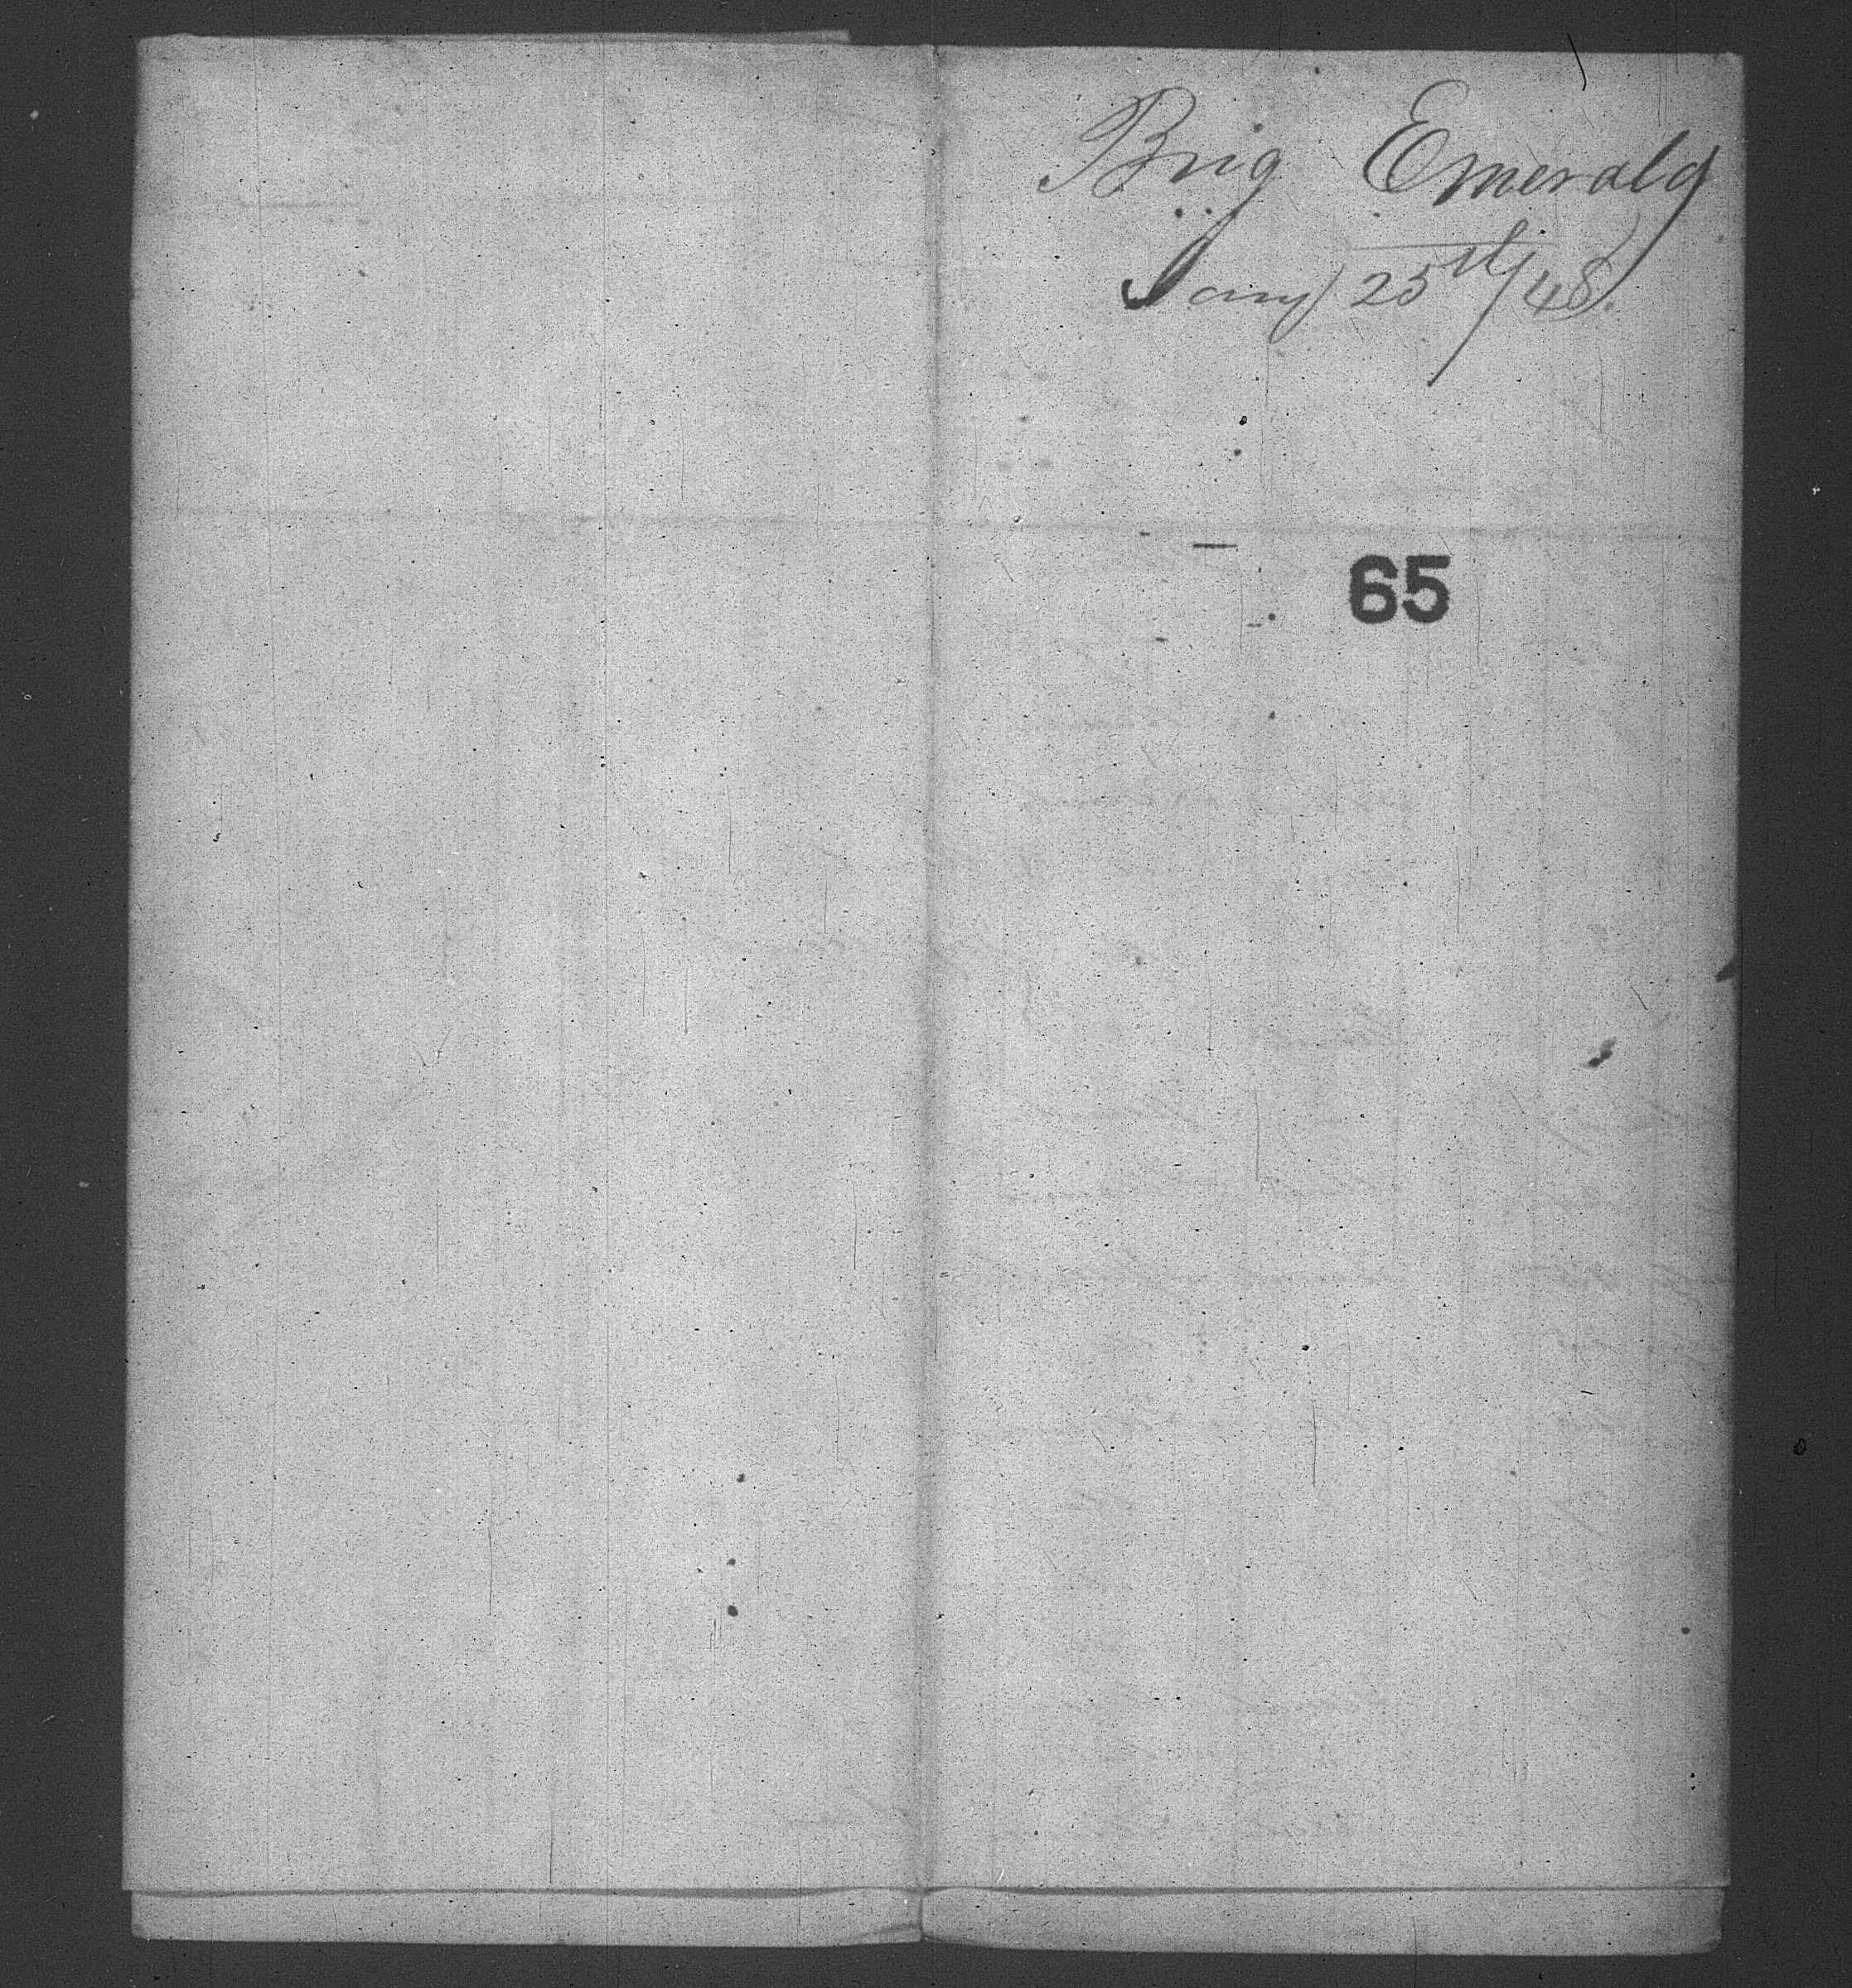 Brig Emerald
Jany 25th/48.
65